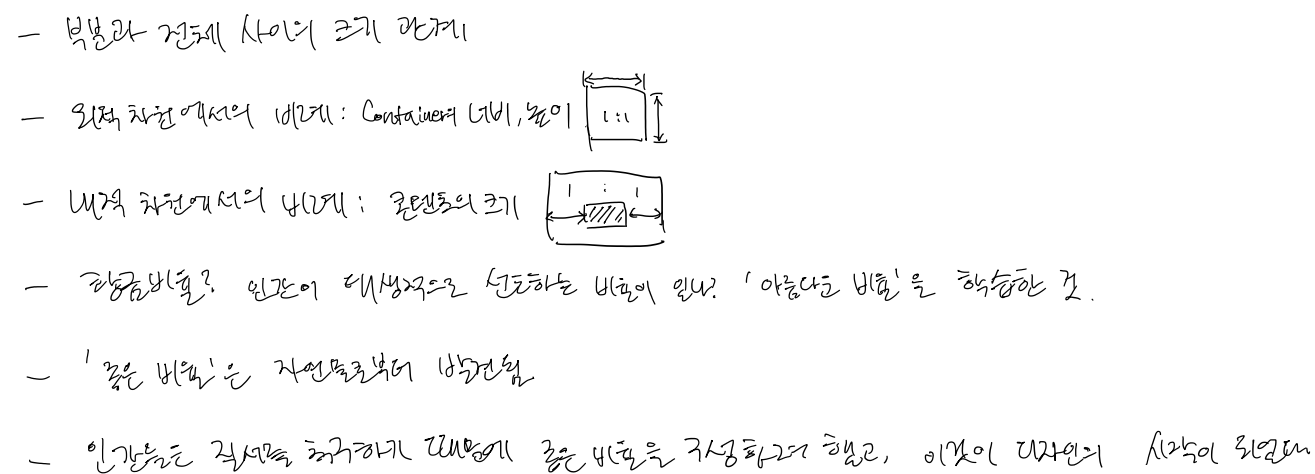 - 부분과 전체 사이의 크기 관계
- 외적 차원에서의 비례: Container의 너비, 높이 1:1
- 내적 차원에서의 비례: 콘텐츠의 크기 1 : 1
- 황금비율? 인간이 태생적으로 선호하는 비율이 있나? '아름다운 비율'을 학습한 것.
- '좋은 비율'은 자연물로부터 발견됨
- 인간들은 질서를 추구하기 때문에 좋은 비율을 구성하려 했고, 이것이 디자인의 시작이 되었다